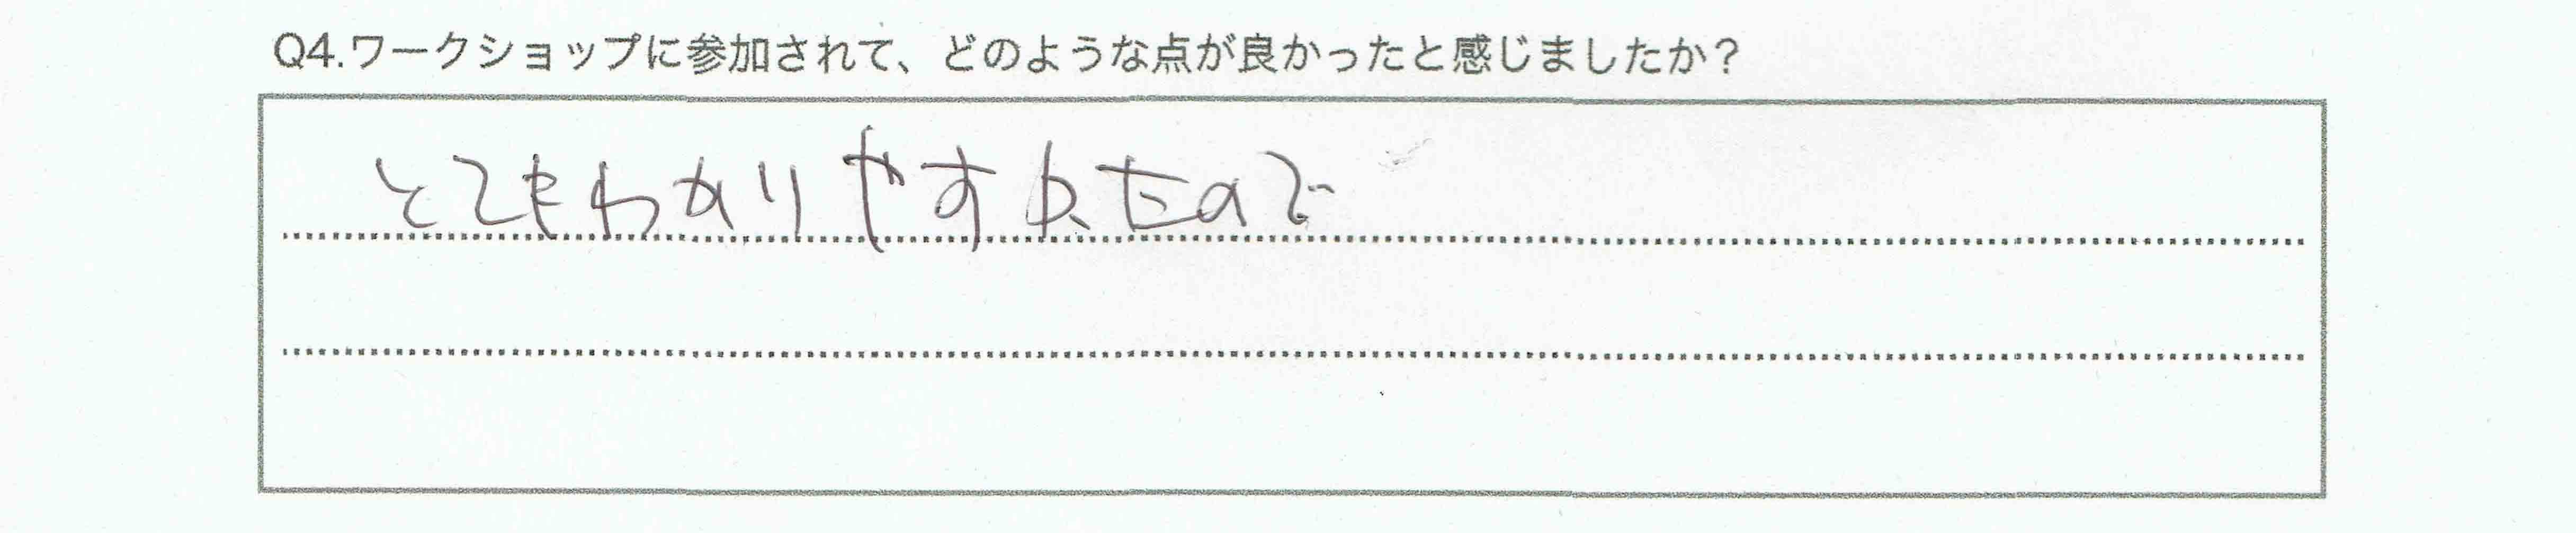 Q4.ワークショップに参加されて、どのような点が良かったと感じましたか？
とてもわかりやすかたので